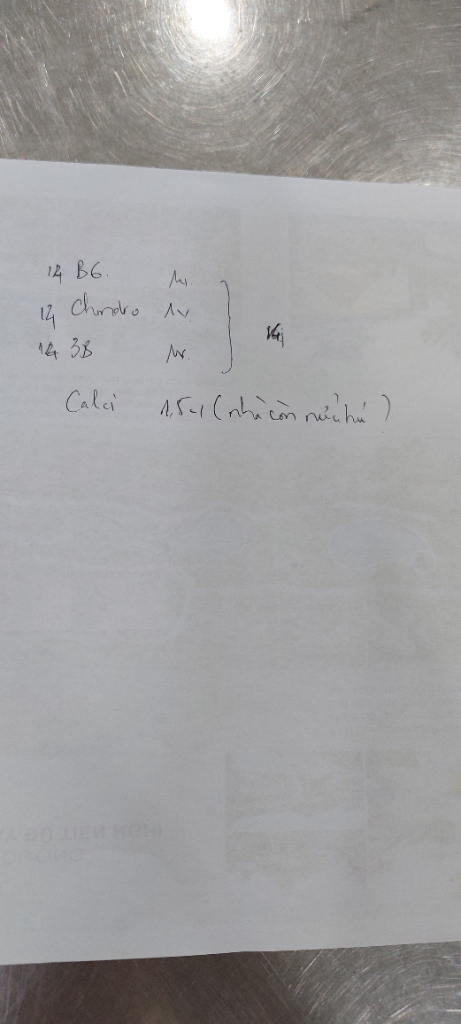 14 B6. 1v.
14 Chondro 1v.
14 3B 1v.
Calci 1,5 (nhà còn nửa hủ)